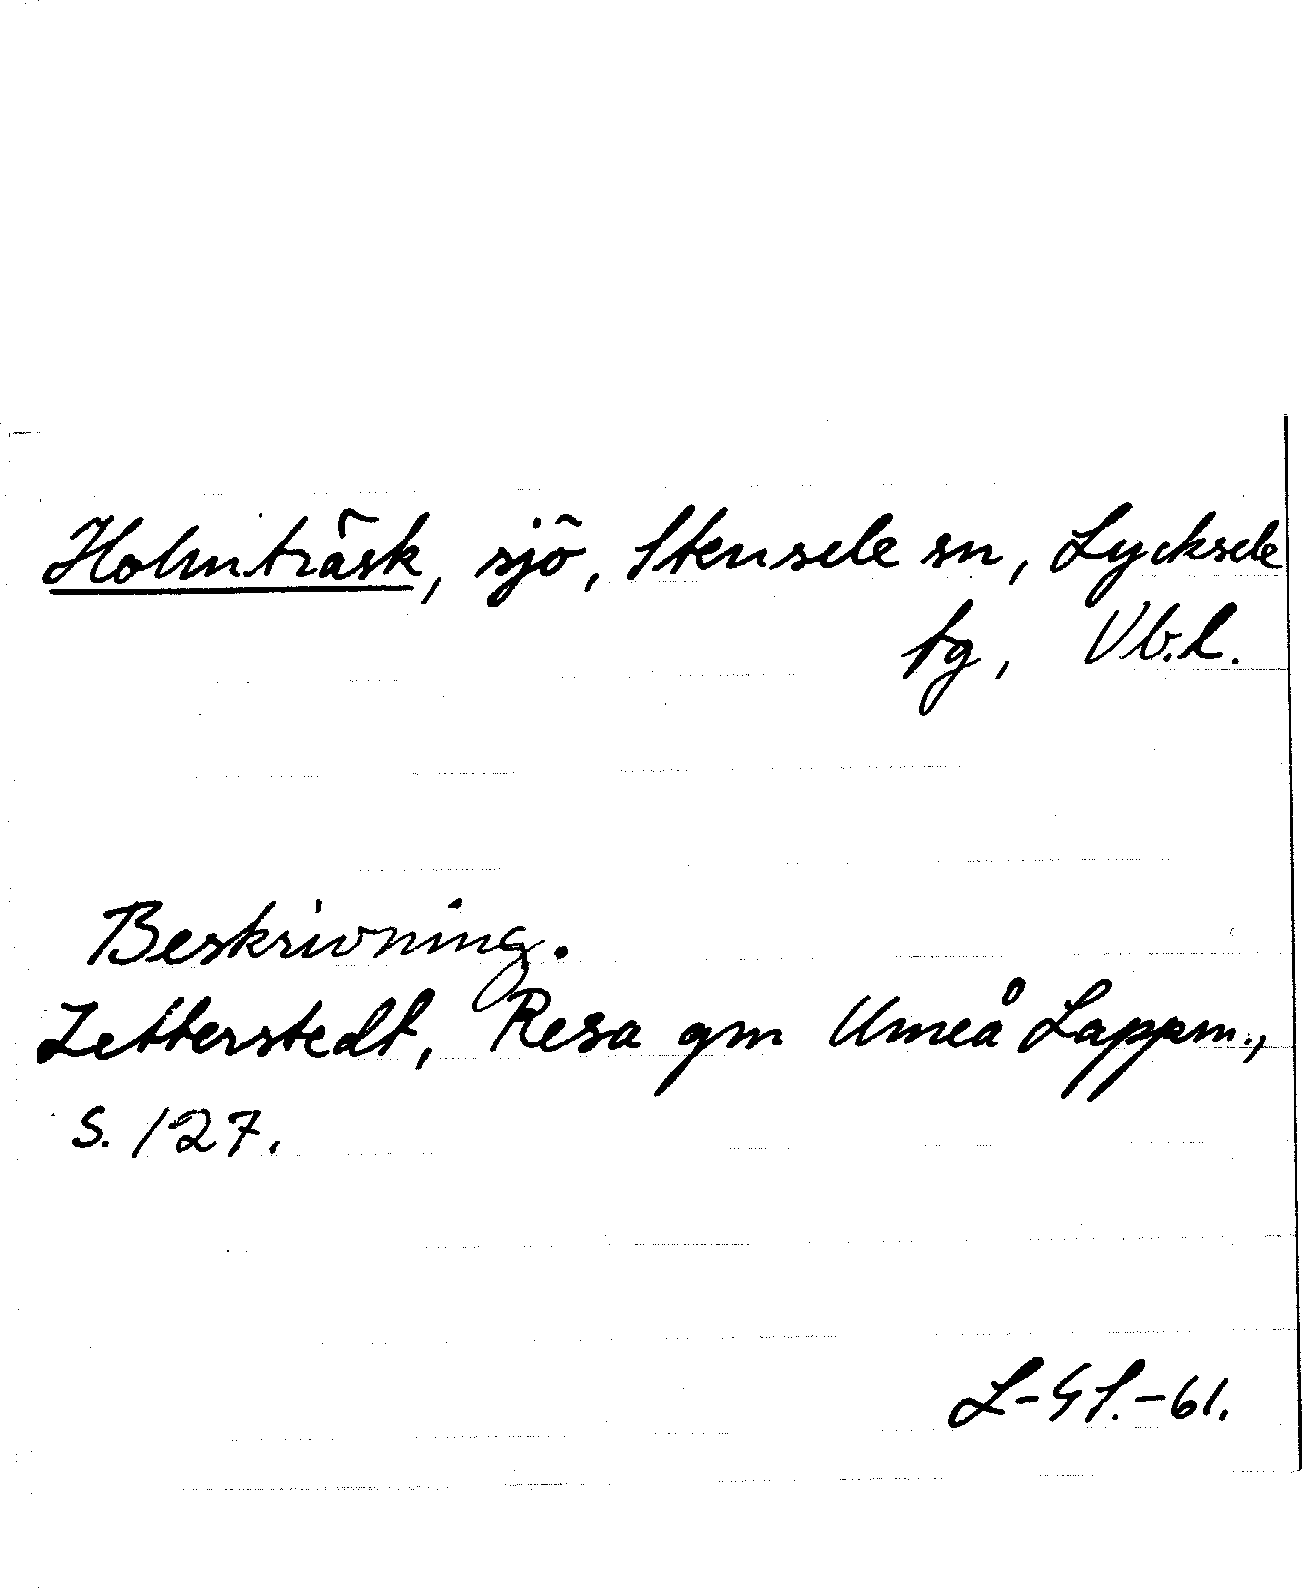 Holmträsk, sjö, Stensele sn, Lycksele
tg, Vb.l.
Beskrivning.
Zetterstedt, Resa gm Umeå Lappm.,
s. 127.
L-GS.-61.